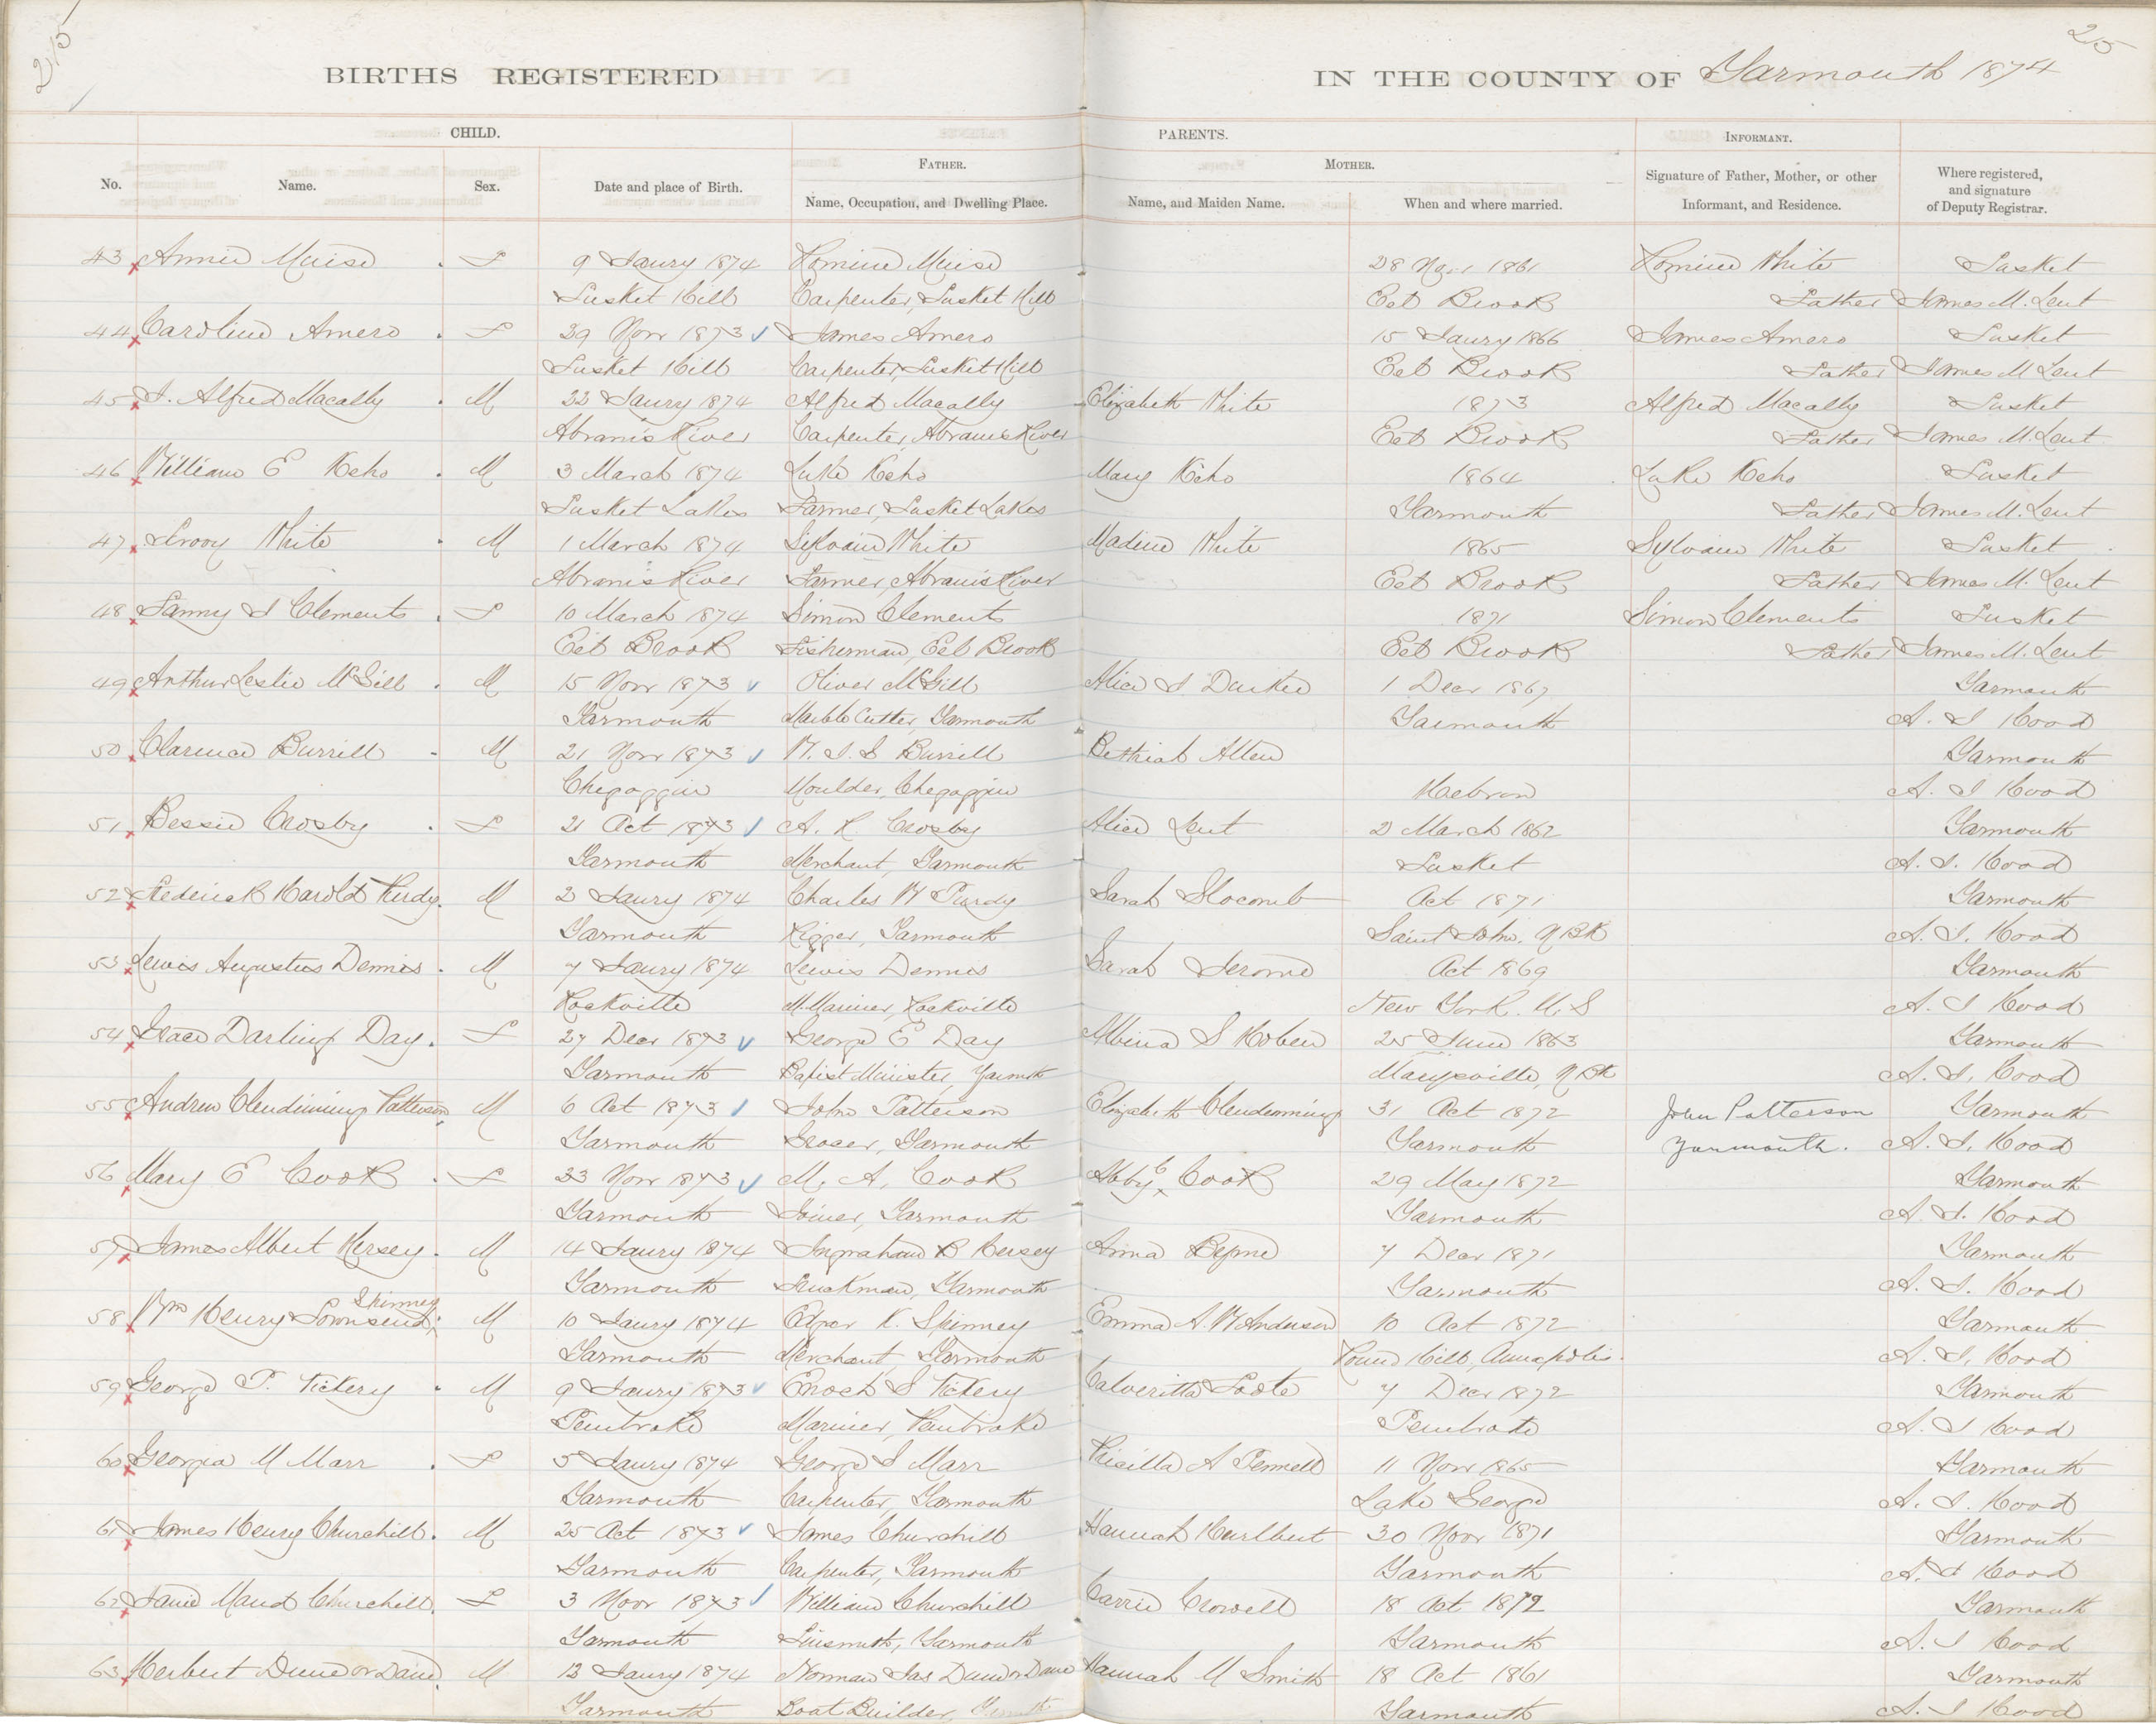 25
25
BIRTHS REGISTERED IN THE COUNTY OF Yarmouth 1874
CHILD. PARENTS. INFORMANT.
FATHER. MOTHER.
No. Name. Sex. Date and place of Birth. Name, Occupation, and Dwelling Place. Name, and Maiden Name. When and where married. Signature of Father, Mother, or other Informant, and Residence. Where registered, and signature of Deputy Registrar.
43 Annie Muise F 9 Jaury 1874 Romine Muise 28 Nov 1861 Romine White Tusket
Tusket Hill Carpenter, Tusket Hill Eel Brook Father James M. Lent
44 Caroline Amero F 29 Novr 1873 James Amero 15 Jaury 1866 James Amero Tusket
Tusket Hill Carpenter, Tusket Hill Eel Brook Father James M Lent
45 J. Alfred Macally M 22 Jaury 1874 Alfred Macally Elizabeth White 1873 Alfred Macally Tusket
Abram's River Carpenter, Abram's River Eel Brook Father James M. Lent
46 William E Keho M 3 March 1874 Luke Keho Mary Keho 1864 Luke Keho Tusket
Tusket Lakes Farmer, Tusket Lakes Yarmouth Father James M. Lent
47 Leroy White M 1 March 1874 Sylvain White Madine White 1865 Sylvain White Tusket
Abram's River Farmer, Abram's River Eel Brook Father James M. Lent
48 Fanny J Clements F 10 March 1874 Simon Clements 1871 Simon Clements Tusket
Eel Brook Fisherman, Eel Brook Eel Brook Father James M. Lent
49 Arthur Leslie McGill M 15 Novr 1873 Oliver McGill Alice J Durkee 1 Decr 1867 Yarmouth
Yarmouth Marble Cutter, Yarmouth Yarmouth A. J Hood
50 Clarence Burrill M 21 Novr 1873 W. J. S Burrill Bethiah Allen Yarmouth
Chegoggin Moulder, Chegoggin Hebron A. J Hood
51 Bessie Crosby F 21 Oct 1873 A. R. Crosby Alice Lent 2 March 1862 Yarmouth
Yarmouth Merchant, Yarmouth Tusket A. J. Hood
52 Frederick Harold Purdy M 2 Jaury 1874 Charles W Purdy Sarah Slocomb Oct 1871 Yarmouth
Yarmouth Rigger, Yarmouth Saint John, N BK A. J. Hood
53 Lewis Augustus Dennis M 7 Jaury 1874 Lewis Dennis Sarah Jerome Oct 1869 Yarmouth
Rockville M. Mariner, Rockville New York. U. S A. J Hood
54 Grace Darling Day F 27 Decr 1873 George E Day Albina S Hoben 25 June 1863 Yarmouth
Yarmouth Baptist Minister, Yarmth Marysville, N BK A. J. Hood
55 Andrew Clendinning Patterson M 6 Oct 1873 John Patterson Elizabeth Clendenning 31 Oct 1872 John Patterson Yarmouth
Yarmouth Grocer, Yarmouth Yarmouth Yarmouth. A. J. Hood
56 Mary E Cook F 23 Novr 1873 M. A. Cook Abby C Cook 29 May 1872 Yarmouth
Yarmouth Joiner, Yarmouth Yarmouth A. J. Hood
57 James Albert Hersey M 14 Jaury 1874 Ingraham B Hersey Anna Beyne 7 Decr 1871 Yarmouth
Yarmouth Truckman, Yarmouth Yarmouth A. J. Hood
58 Wm Henry Townsend Skinney M 10 Jaury 1874 Edgar K. Skinney Emma A. W Anderson 10 Oct 1872 Yarmouth
Yarmouth Merchant, Yarmouth Round Hill, Annapolis. A. J. Hood
59 George T. Vickery M 9 Jaury 1873 Enoch S Vickery Calveritta Foote 7 Decr 1872 Yarmouth
Pembroke Mariner, Pembroke Pembroke A. J Hood
60 Georgia M Marr F 5 Jaury 1874 George J Marr Pricilla A Pennell 11 Novr 1865 Yarmouth
Yarmouth Carpenter, Yarmouth Lake George A. J. Hood
61 James Henry Churchill M 25 Oct 1873 James Churchill Hannah Hurlbert 30 Novr 1871 Yarmouth
Yarmouth Carpenter, Yarmouth Yarmouth A. J Hood
62 Janie Maud Churchill F 3 Novr 1873 William Churchill Carrie Crowell 18 Oct 1872 Yarmouth
Yarmouth Tinsmith, Yarmouth Yarmouth A. J Hood
63 Herbert Dune or Dane M 12 Jaury 1874 Norman Jas Dune or Dane Hannah M Smith 18 Oct 1861 Yarmouth
Yarmouth Boat Builder, Yarmth Yarmouth A. J Hood